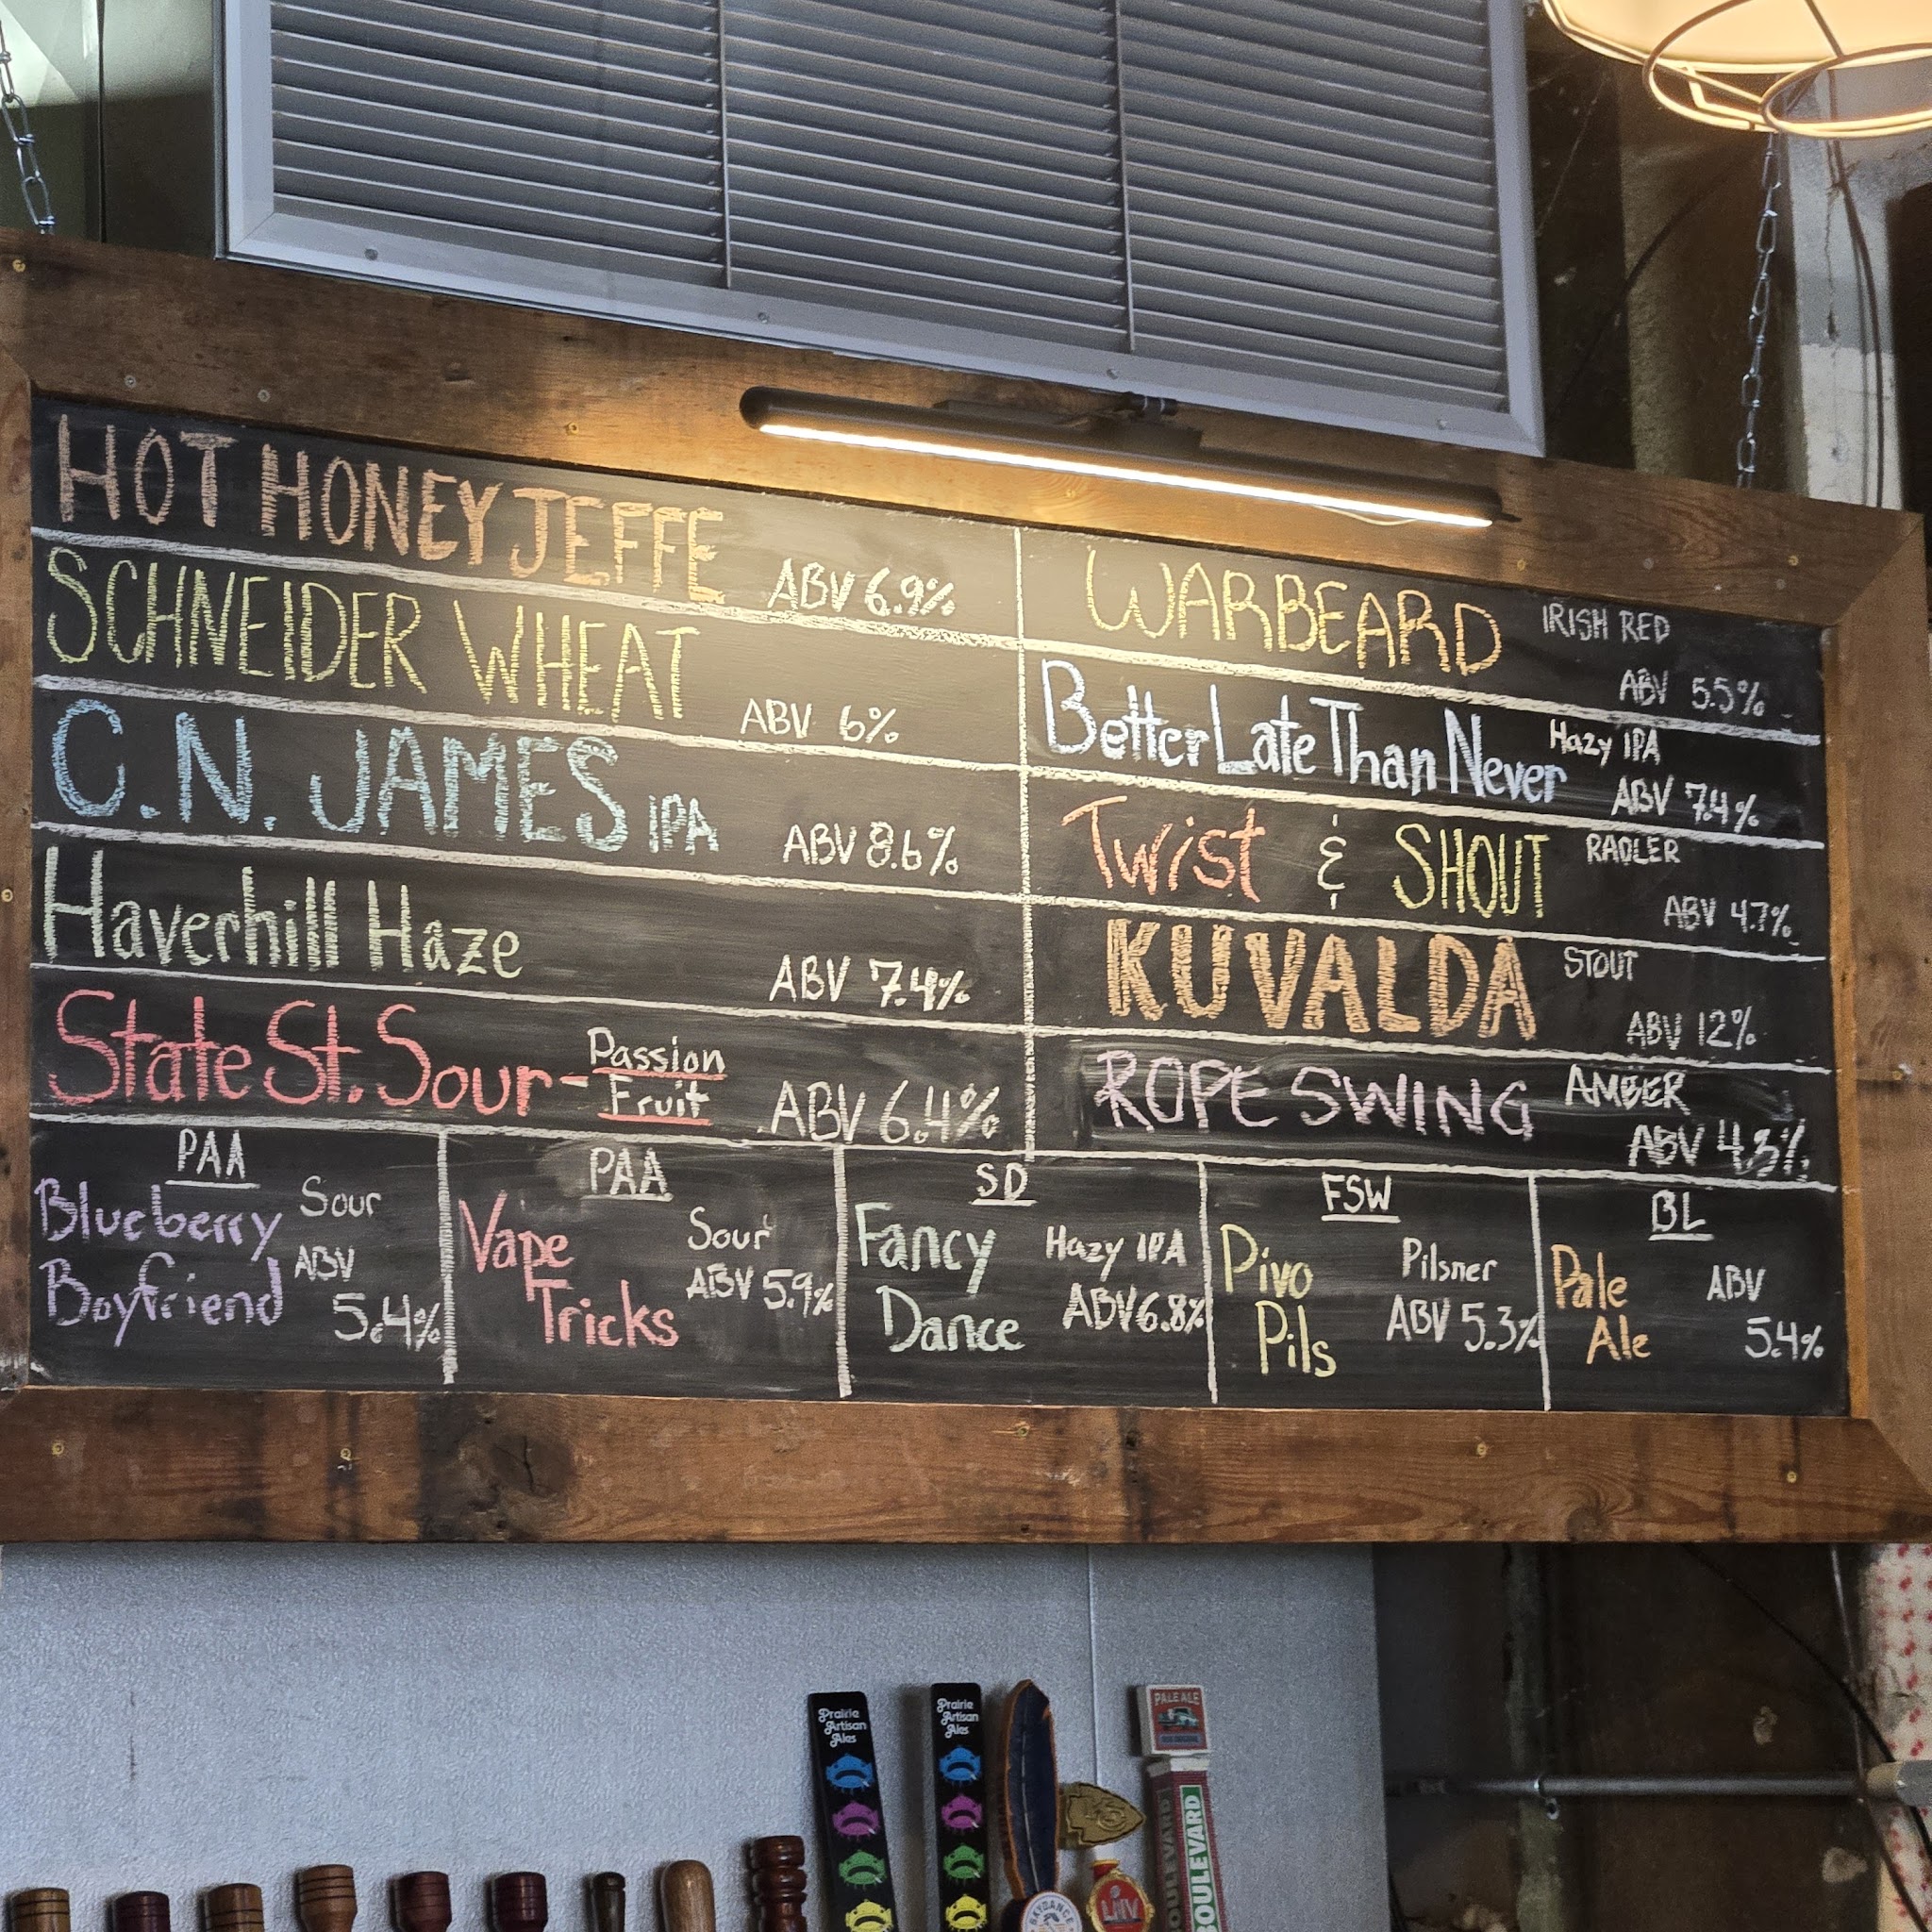 HOT HONEY JEFFE ABV 6.9%
SCHNEIDER WHEAT ABV 6%
C.N. JAMES IPA ABV 8.6%
Haverhill Haze ABV 7.4%
State St. Sour - Passion Fruit ABV 6.4%
WARBEARD IRISH RED
ABV 5.5%
Better Late Than Never Hazy IPA
ABV 7.4%
Twist & SHOUT RADLER
ABV 4.7%
KUVALDA STOUT
ABV 12%
ROPE SWING AMBER
ABV 4.3%
PAA
Blueberry Sour
Boyfriend ABV
5.4%
PAA
Vape Sour
Tricks ABV 5.9%
SD
Fancy Hazy IPA
Dance ABV 6.8%
FSW
Pivo Pilsner
Pils ABV 5.3%
BL
Pale ABV
Ale 5.4%
Prairie
Artisan
Ales
Prairie
Artisan
Ales
SKYDANCE
LIV
PALE ALE
BOULEVARD
BOULEVARD